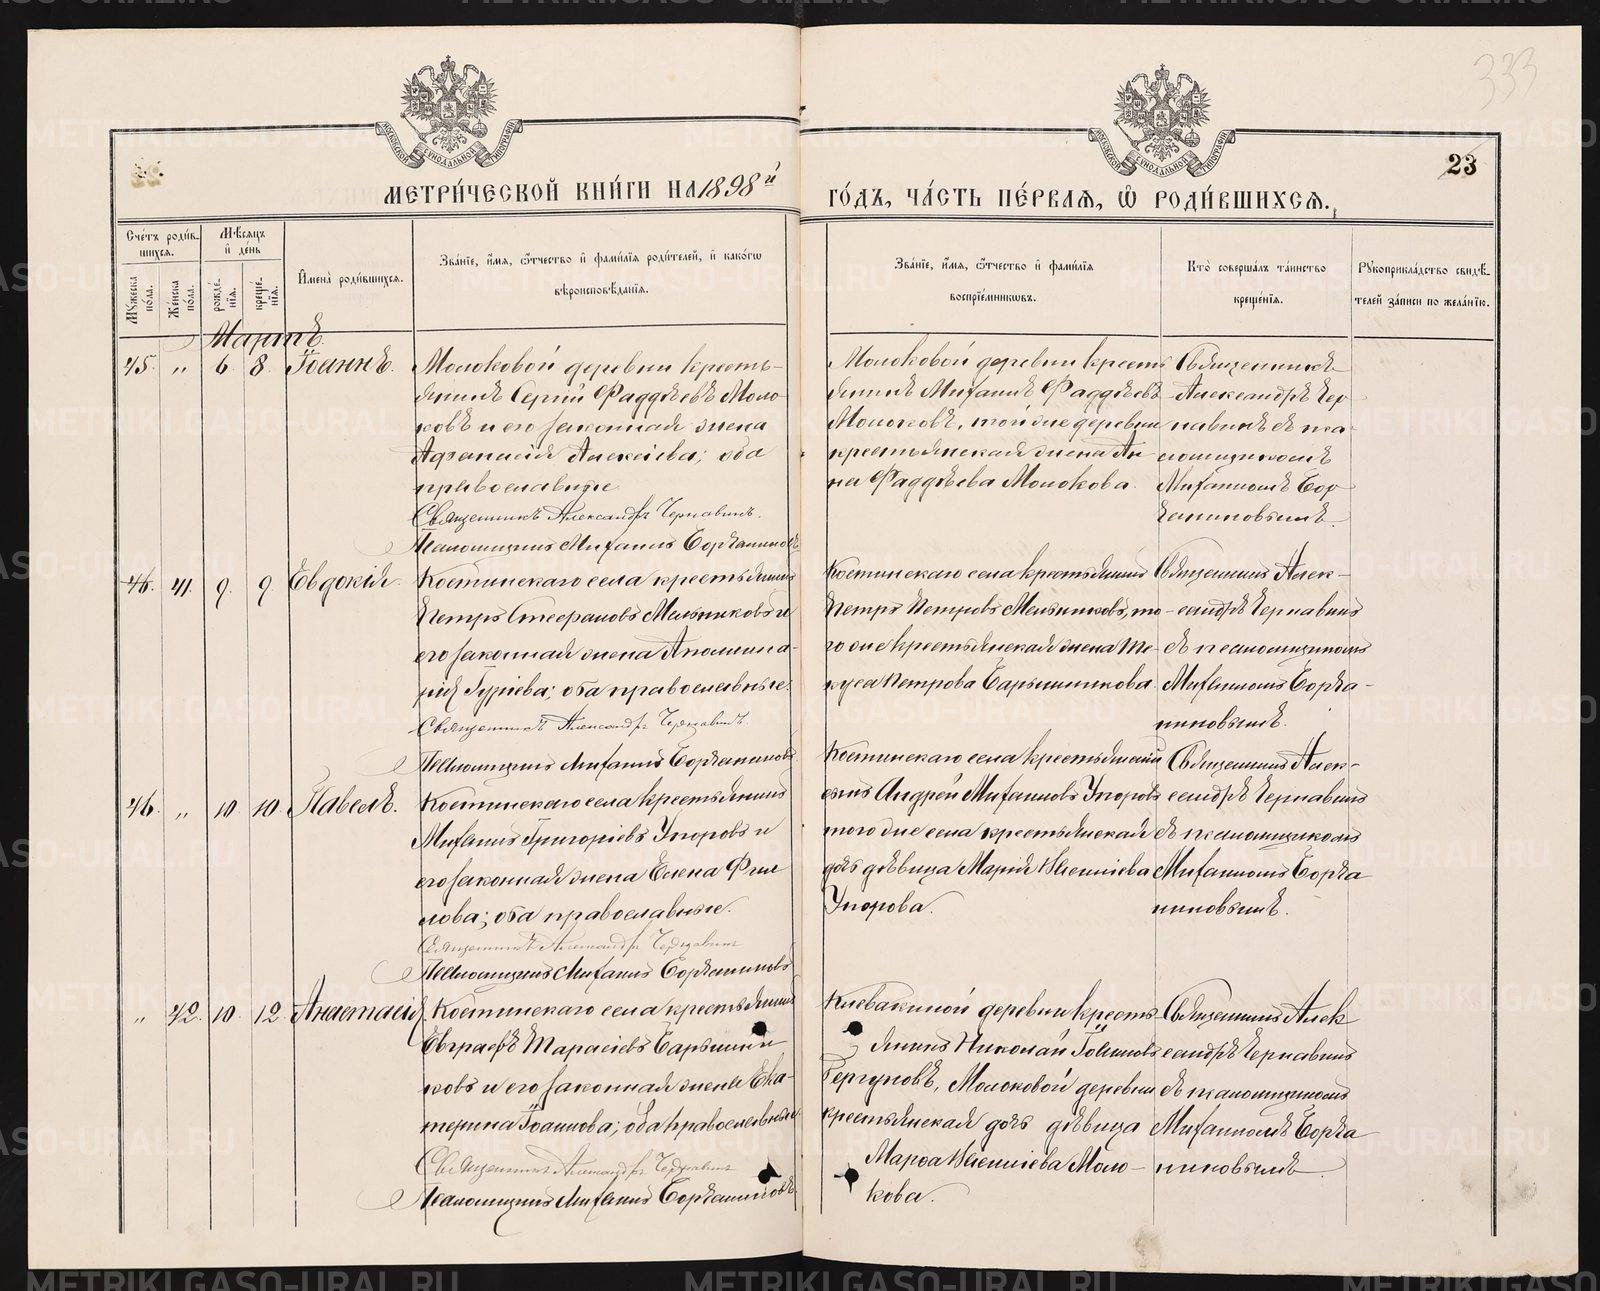 333
23
МЕТРИ́ЧЕСКОЙ КНИ́ГИ НА 1898й
ГО́ДЪ, ЧА́СТЬ ПЕ́РВАЯ, Ѡ҆ РОДИ́ВШИХСЯ.
Сче́тъ роди́в-
шихся.
Мꙋ́жеска по́ла.
Же́нска по́ла.
Мѣ́сяцъ и҆ де́нь
рожде́-нїя.
креще́-нїя.
И҆мена̀ роди́вшихся.
Зва́нїе, и҆́мя, ѻ҆́тчество и҆ фами́лїя роди́телей, и҆ како́гѡ
вѣроисповѣ́данїя.
Зва́нїе, и҆́мя, ѻ҆́тчество и҆ фами́лїя
воспрїе́мникѡвъ.
Кто̀ соверша́лъ та́инство
креще́нїя.
Рꙋкоприкла́дство свидѣ́-
телей за́писи по жела́нїю.
Мартъ
45. „ 6. 8. Іоаннъ.
Молоковой деревни кресть-
янинъ Сергій Фаддѣевъ Моло-
ковъ и его законная жена
Афанасія Алексіева; оба
православные
Священникъ Александръ Чернавинъ.
Псаломщикъ Михаилъ Борчаниновъ
Молоковой деревни кресть
янинъ Михаилъ Фаддѣевъ
Молоковъ, той же деревни
крестьянская жена Ан
на Фаддѣева Молокова.
Священникъ
Александръ Чер
навинъ съ пса-
ломщикомъ
Михаиломъ Бор
чаниновымъ.
46. 41. 9. 9. Евдокія.
Костинскаго села крестьянинъ
Петръ Стефановъ Мельниковъ и
его законная жена Аполлина-
рія Гуріева; оба православные.
Священникъ Александръ Чернавинъ.
Псаломщикъ Михаилъ Борчаниновъ
Костинскаго села крестьянинъ
Петръ Петровъ Мельниковъ, то-
го же крестьянская жена
Петрова Барышникова.
Священникъ Алек-
сандръ Чернавинъ
съ псаломщикомъ
Михаиломъ Борча-
ниновымъ.
46. „ 10. 10. Павелъ.
Костинскаго села крестьянинъ
Михаилъ Григоріевъ Упоровъ и
его законная жена Елена Фи
лова; оба православные.
Священникъ Александръ Чернавинъ
Псаломщикъ Михаилъ Борчаниновъ
Костинскаго села крестьянинъ
Андрей Михаиловъ Упоровъ
того же села крестьянская
дочь дѣвица Марія
Упорова.
Священникъ Алек-
сандръ Чернавинъ
съ псаломщикомъ
Михаиломъ Борча
ниновымъ.
„ 42. 10. 12. Анастасія.
Костинскаго села крестьянинъ
Евграфъ Тарасіевъ Барышни
ковъ и его законная жена Ека-
терина Іоаннова; оба православные
Священникъ Александръ Чернавинъ
Псаломщикъ Михаилъ Борчаниновъ.
Клевакиной деревни кресть-
янинъ Николай Іоанновъ
Молоковой деревни
крестьянская дочь дѣвица
Марѳа Моло-
кова.
Священникъ Алек
сандръ Чернавинъ
съ псаломщикомъ
Михаиломъ Борча
ниновымъ
METRIKI.GASO-URAL.RU